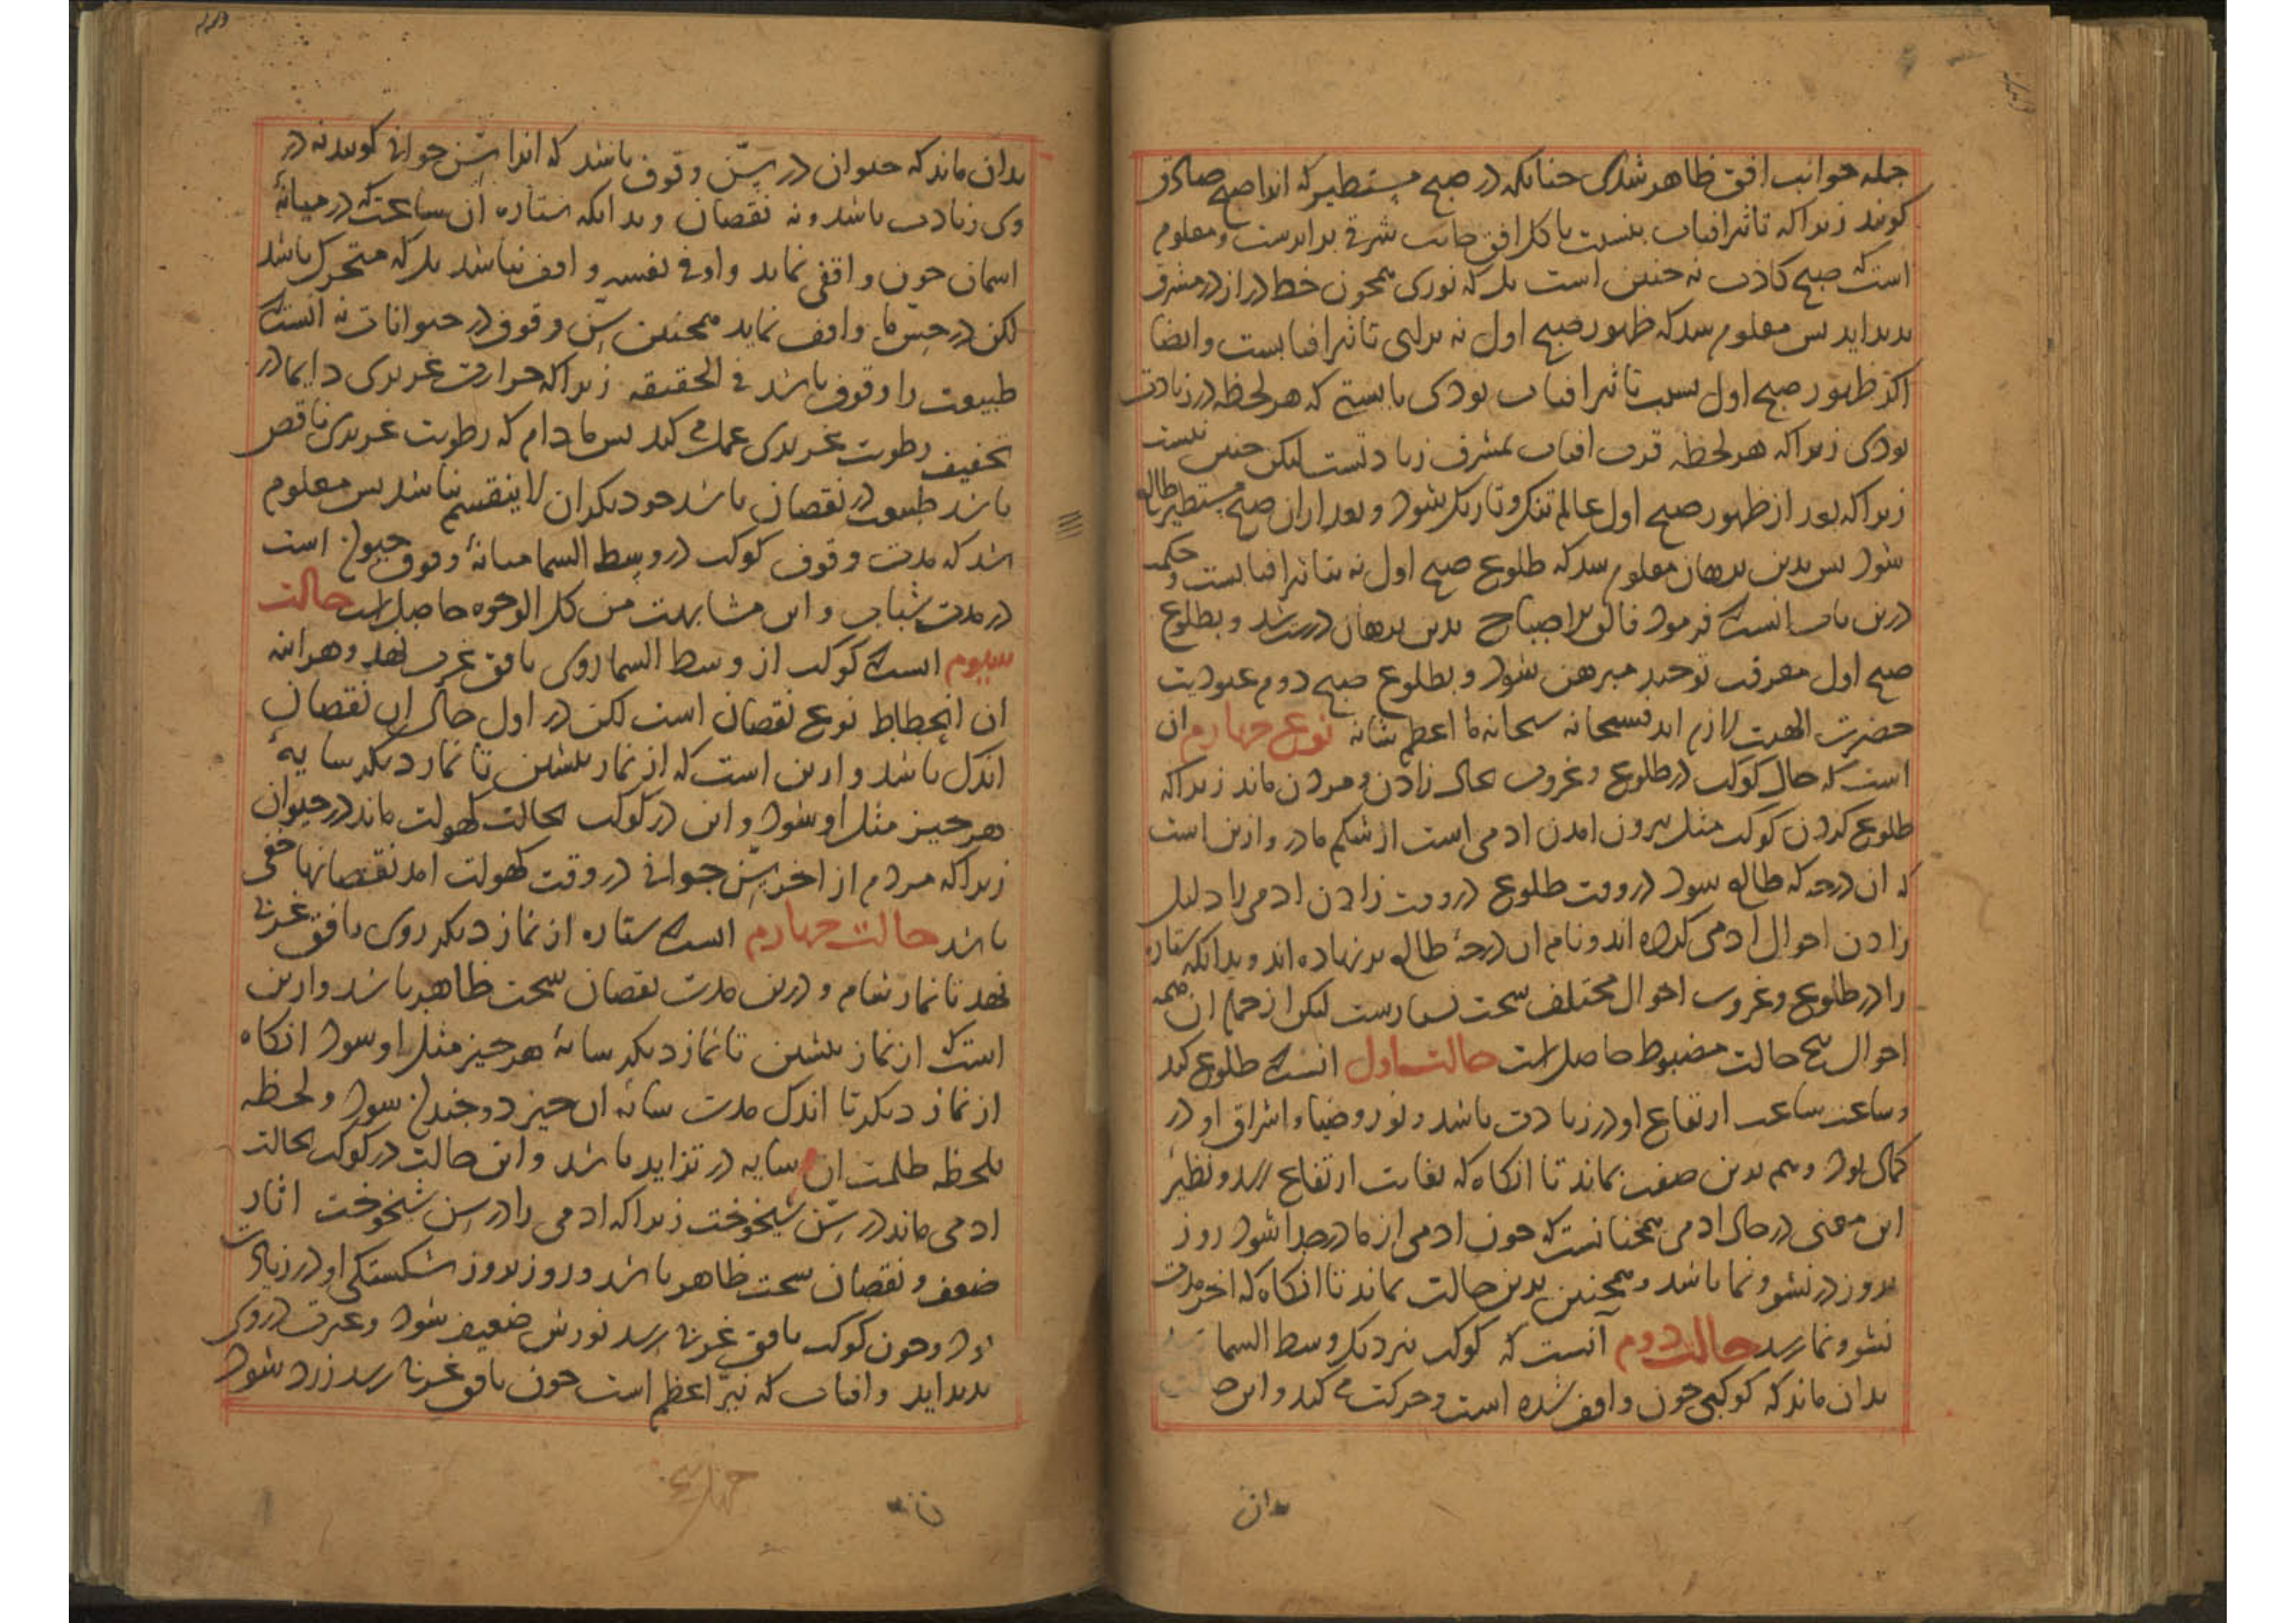 جمله جوانب افق ظاهر شدی چنانکه در صبح مستطیر که انرا صبح صادق
کویند زیرا که تاثیر افتاب بنسبت با کل افق جانب شرقی برابرست و معلوم
است که صبح کاذب نه چنین است بلکه نوری همچون خط دراز در مشرق
بدید اید بس معلوم شد که ظهور صبح اول نه برای تاثیر افتابست و ایضا
اکر ظهور صبح اول بسبب تاثیر افتاب بودی بایستی که هر لحظه در زیادت
بودی زیرا که هر لحظه قرب افتاب بمشرق زیادتست لیکن چنین نیست
زیرا که بعد از ظهور صبح اول عالم تنک و تاریک شود و بعد ازان صبح مستطیر طالع
شود بس بدین برهان معلوم شد که طلوع صبح اول نه بتاثیر افتابست و حکمت
درین باب انست که فرمود فالق الاصباح بدین برهان درست شد و بطلوع
صبح اول معرفت توحید مبرهن شود و بطلوع صبح دوم عبودیت
حضرت الهیت لازم اید فسبحانه سبحانه ما اعظم شانه نوع چهارم ان
است که حال کوکب در طلوع و غروب بحال زادن و مردن ماند زیرا که
طلوع کردن کوکب مثل بیرون امدن ادمی است از شکم مادر و ازین است
که ان درجه که طالع شود در وقت طلوع در وقت زادن ادمی را دلیل
زادن احوال ادمی کرده اند و نام ان درجهٔ طالع بر نهاده اند و بدانکه ستاره
را در طلوع و غروب احوال مختلف سخت بسیارست لیکن از جمله ان همه
احوال پنج حالت مضبوط حاصل است حالت اول انست که طلوع کند
و ساعت ساعت ارتفاع او در زیادت باشد و نور و ضیا و اشراق او در
کمال بود و هم بدین صفت بماند تا انکاه که بغایت ارتفاع رسد و نظیر
این معنی در حال ادمی همچنانست که چون ادمی از مادر جدا شود روز
بروز در نشو و نما باشد و همچنین بدین حالت بماند تا انکاه که اخر مدت
نشو و نما رسد حالت دوم آنست که کوکب نزدیک وسط السما رسد
بدان ماند که کوکبی چون واقف شده است و حرکت می کند و این حالت
بدان
بدان ماند که حیوان در سن وقوف باشد که انرا سن جوانی کویند نه در
وی زیادت باشد و نه نقصان و بدانکه ستاره ان ساعت که در میانهٔ
اسمان چون واقفی نماید و او فی نفسه واقف نباشد بلکه متحرک باشد
لکن در حس ما واقف نماید همچنین سن وقوف در حیوانات نه انست که
طبیعت را وقوف باشد فی الحقیقه زیرا که حرارت غریزی دایما در
تخفیف رطوبت غریزی عمل می کند بس مادام که رطوبت غریزی ناقص
باشد طبیعت در نقصان باشد خود دیکر ان لا ینقسم نباشد بس معلوم
شد که مدت وقوف کوکب در وسط السما میانهٔ وقوف حیوان است
در مدت شباب و این مشابهت من کل الوجوه حاصل است حالت
سیوم انست که کوکب از وسط السما روی بافق غرب نهد و هراینه
ان انحطاط نوع نقصان است لکن در اول حال ان نقصان
اندک باشد و ازین است که از نماز پیشین تا نماز دیکر سایهٔ
هر چیز مثل او شود و این در کوکب بحالت کهولت ماند در حیوان
زیرا که مردم از اخر سن جوانی در وقت کهولت امد نقصانها خفی
باشد حالت چهارم انست که ستاره از نماز دیکر روی بافق غربی
نهد تا نماز شام و درین مدت نقصان سخت ظاهر باشد و ازین
است که از نماز پیشین تا نماز دیکر سایهٔ هر چیز مثل او شود انکاه
از نماز دیکر تا اندک مدت سایهٔ ان چیز دو چندان شود و لحظه
بلحظه ظلمت ان سایه در تزاید باشد و این حالت در کوکب بحالت
ادمی ماند در سن شیخوخت زیرا که ادمی را در سن شیخوخت اثار
ضعف و نقصان سخت ظاهر باشد و روز بروز شکستکی او در زیادت
بود و چون کوکب بافق غربی رسد نورش ضعیف شود و غیرت در وی
بدید اید و افتاب که نیر اعظم است چون بافق غربی رسد زرد شود